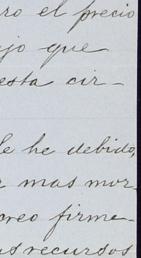 ro el precio
jo que
esta cir-
le he debido,
r mas mor
creo firme-
us recursos